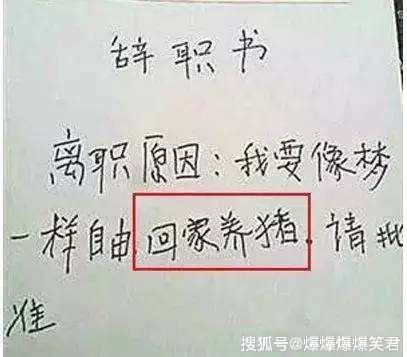 辞职书
离职原因:我要像梦
一样自由,回家养猪.请批
准
搜狐号@爆爆爆爆笑君